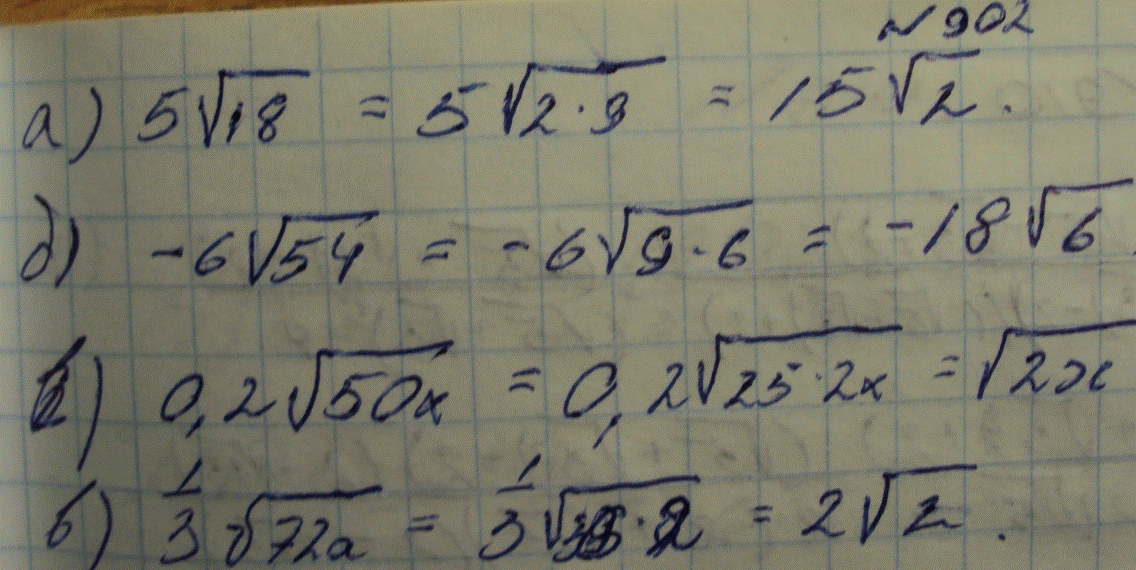 № 902
а) 5√18 = 5√2·9 = 15√2.
д) -6√54 = -6√9·6 = -18√6.
в) 0,2√50x = 0,2√25·2x = √2x
б) 1/3 √72a = 1/3 √36·2 = 2√2.